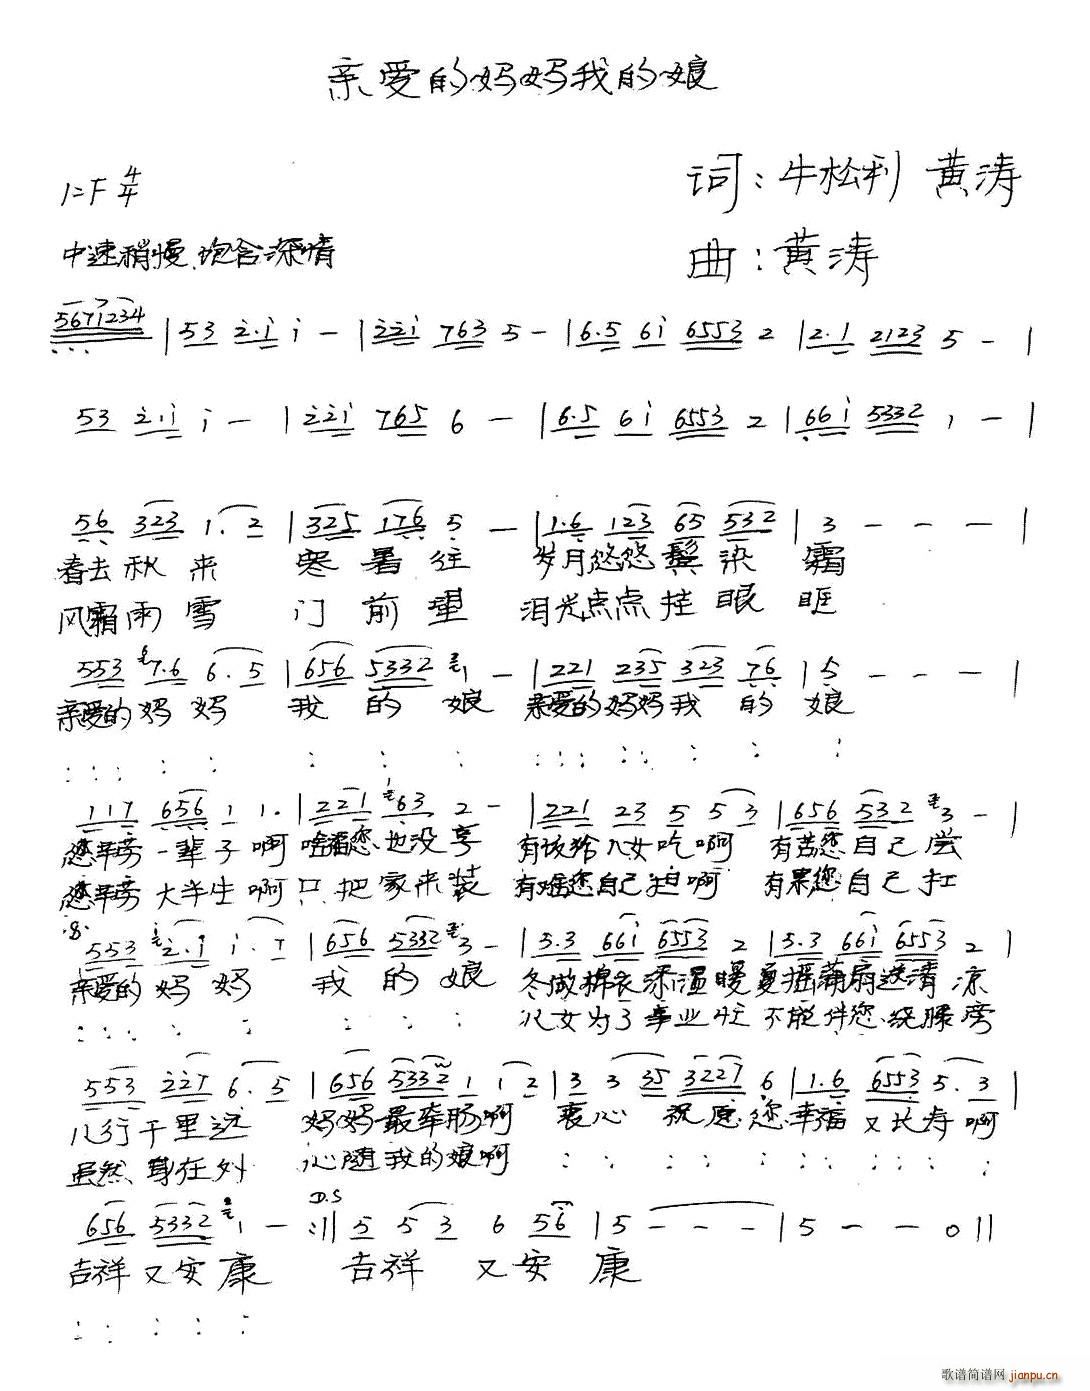 亲爱的妈妈我的娘
词：牛松利 黄涛
1=F 4/4
曲：黄涛
中速稍慢、饱含深情
5671234 | 53 2.1 1 - | 221 763 5 - | 6.5 61 6553 2 | 2.1 2123 5 - |
53 2.1 1 - | 221 765 6 - | 6.5 61 6553 2 | 661 5332 1 - |
56 323 1.2 | 325 176 5 - | 1.6 123 65 532 | 3 - - - |
春去秋来 寒暑往 岁月悠悠鬓染霜
风霜雨雪 门前望 泪光点点挂眼眶
553 7.6 6.5 | 656 5332 1 - | 221 235 323 76 | 5 - - - |
亲爱的妈妈 我的娘 亲爱的妈妈我的娘
117 656 1 1. | 221 63 2 - | 221 23 5 53 | 656 532 3 - |
您辛劳一辈子啊 啥福您也没享 有该给儿女吃啊 有苦您自己尝
您辛劳大半生啊 只把家来装 有啥您自己担啊 有累您自己扛
553 2.1 1.7 | 656 5332 3 - | 5.3 661 6553 2 | 5.3 661 6553 2 |
亲爱的妈妈 我的娘 冬做棉衣添温暖 夏摇蒲扇送清凉
儿女为了事业忙 不能伴您绕膝旁
553 227 6.5 | 656 5332 1 12 | 3 3 35 3227 6 | 1.6 6553 5.3 |
儿行千里远 妈妈最牵肠啊 衷心祝愿您 幸福又长寿啊
虽然身在外 心随我的娘啊
D.S
656 5332 1 - :|| 5 53 6 56 | 5 - - - | 5 - - 0 ||
吉祥又安康 吉祥又安康
歌谱简谱网
jianpu.cn